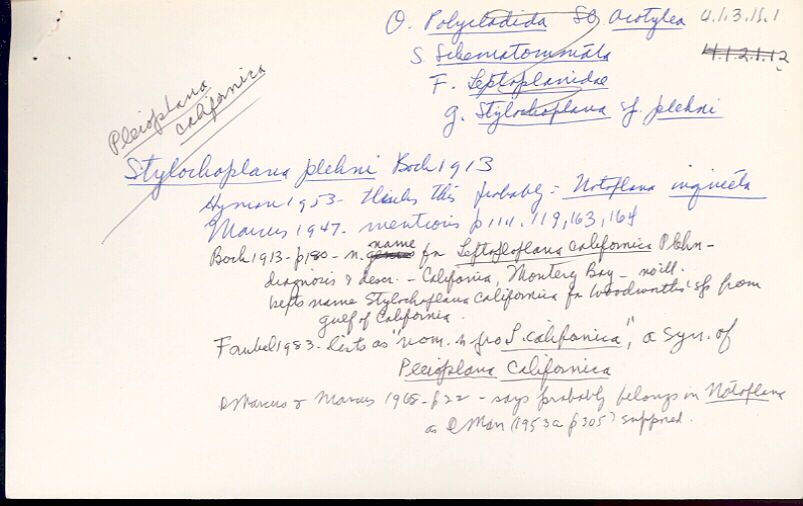 O. Polycladida SO Acotylea 4.1.3.11.1
S. Schematommata 4.1.2.1.12
F. Leptoplanidae
g. Stylochoplana sp. plehni
Pleioplana
californica
Stylochoplana plehni Bock 1913
Hyman 1953 - thinks this probably = Notoplana inquieta
Marcus 1947 - mentions p 111, 119, 163, 164
Bock 1913 - p180 - n. genus name for Leptoploplana californica Plehn -
diagnosis & descr. - California, Monterey Bay - no ill.
kepts name Stylochoplana californica for Woodworth's sp from
gulf of California.
Faubel 1983 - lists as "nom. n. for L. californica", a syn. of
Pleioplana californica
Marcus & Marcus 1968 - p22 - says probably belongs in Notoplana
as (1953a p305) supposed.